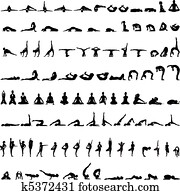 k5372431 www.fotosearch.com